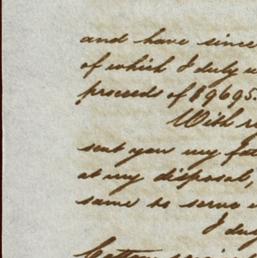 and have since
of which I duly
proceeds of $9695.
With
sent you my
at my disposal,
same to serve
I
Cotton